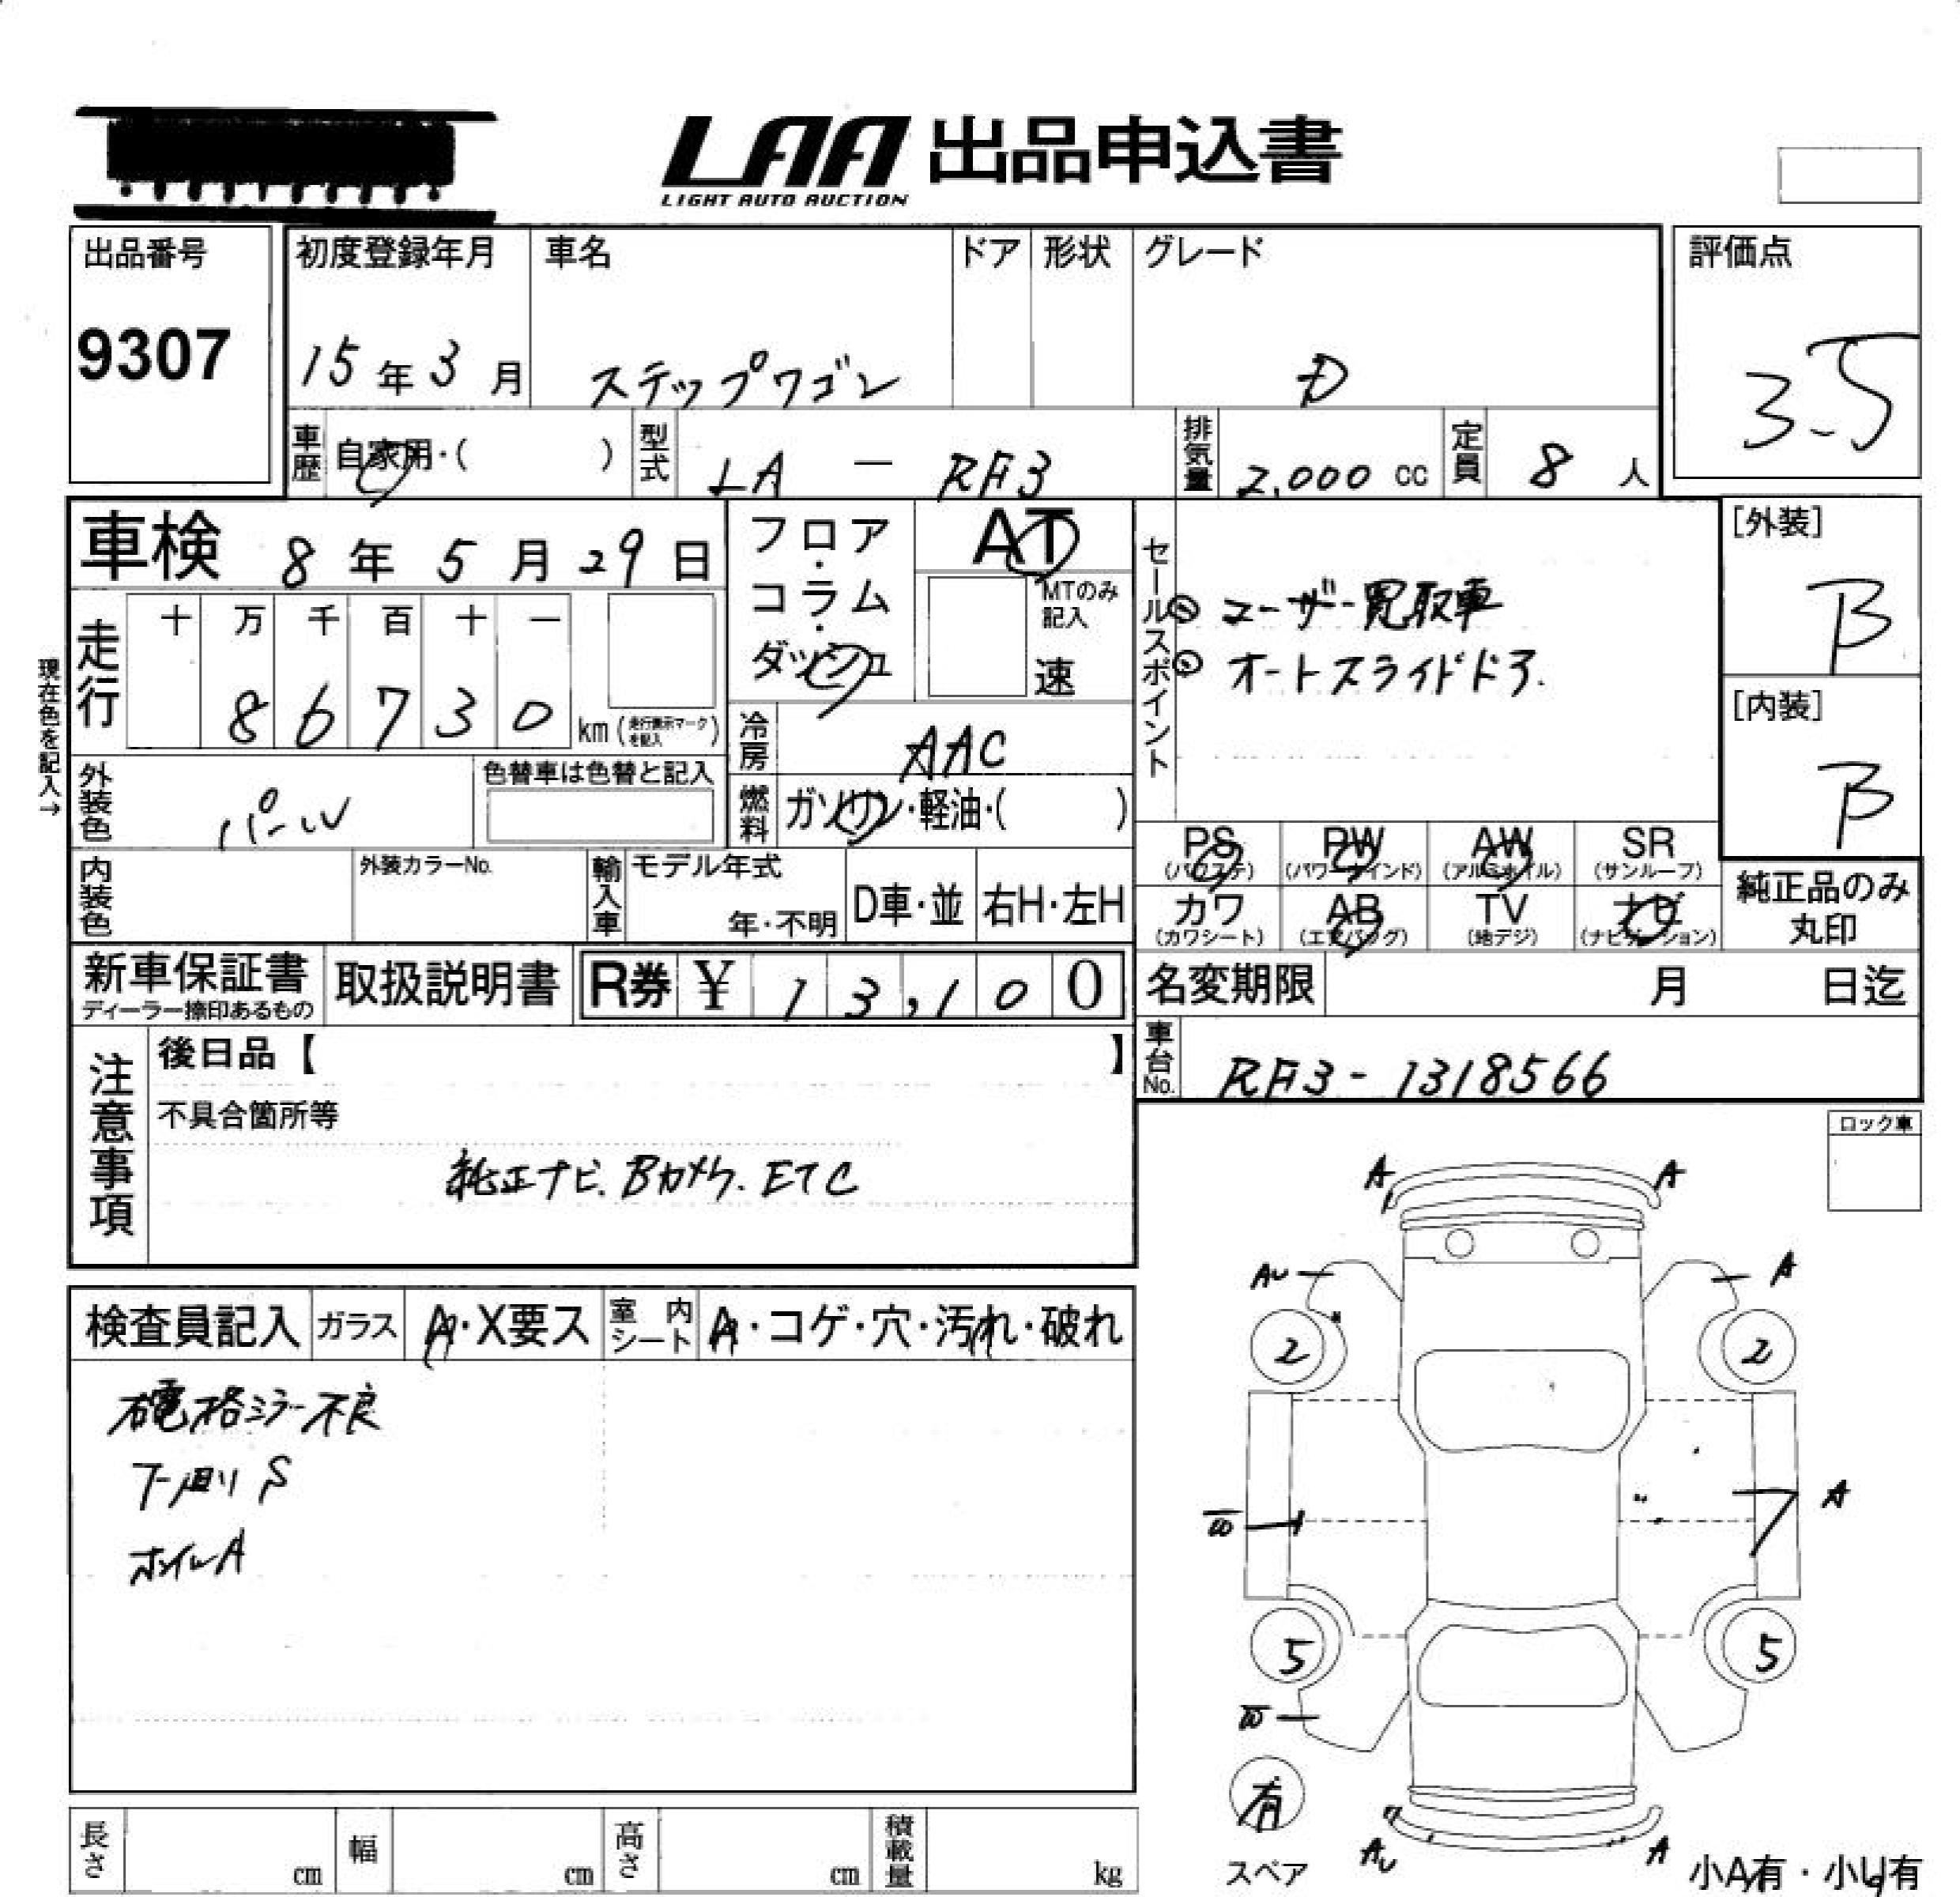 LAA 出品申込書
LIGHT AUTO AUCTION
出品番号
9307
初度登録年月
15年3月
車名
ステップワゴン
ドア
形状
グレード
D
評価点
3.5
車歴
自家用・( )
型式
LA - RF3
排気量
2,000 cc
定員
8 人
車検 8年5月29日
フロア・コラム・ダッシュ
AT
MTのみ記入
速
セールスポイント
ユーザー買取車
オートスライドドア.
[外装]
B
[内装]
B
現在色を記入→
走行
十 万 千 百 十 一
8 6 7 3 0 km (走行表示マークを記入)
冷房
AAC
外装色
パール
色替車は色替と記入
燃料
ガソリン・軽油・( )
PS (パワステ)
PW (パワーウインド)
AW (アルミホイル)
SR (サンルーフ)
カワ (カワシート)
AB (エアバッグ)
TV (地デジ)
ナビ (ナビゲーション)
純正品のみ丸印
内装色
外装カラーNo.
輸入車
モデル年式
年・不明
D車・並
右H・左H
新車保証書
ディーラー捺印あるもの
取扱説明書
R券 ¥ 13,100
名変期限 月 日迄
車台No.
RF3-1318566
注意事項
後日品【 】
不具合箇所等
純正ナビ.Bカメラ.ETC
ロック車
検査員記入
ガラス
A・X要ス
室内シート
A・コゲ・穴・汚れ・破れ
右電格ミラー不良
下廻りS
ホイルA
A A
AU A
2 2
W A
5 5
W
有
スペア
AU A
小A有・小U有
長さ cm
幅 cm
高さ cm
積載量 kg